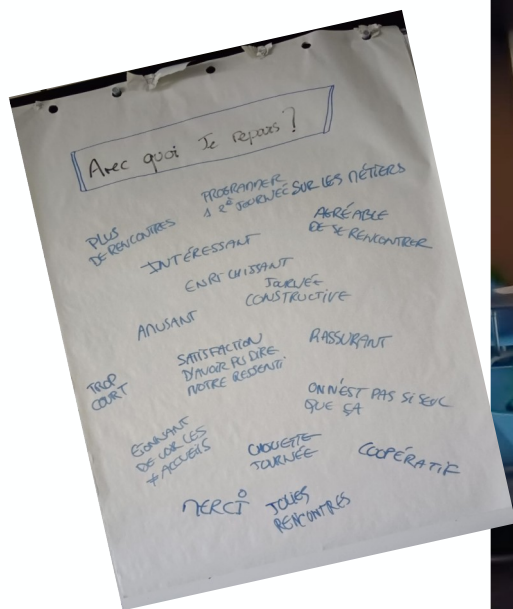 Avec quoi Je repars ?
PROGRAMMER
1 2e JOURNÉE SUR LES MÉTIERS
PLUS
DE RENCONTRES
AGRÉABLE
DE SE RENCONTRER
INTÉRESSANT
ENRICHISSANT
JOURNÉE
CONSTRUCTIVE
AMUSANT
SATISFACTION
D'AVOIR PU DIRE
NOTRE RESSENTI
RASSURANT
TROP
COURT
ON N'EST PAS SI SEUL
QUE ÇA
ÉTONNANT
DE VOIR LES
≠ ACCUEILS
CHOUETTE
JOURNÉE
COOPÉRATIF
MERCI
JOLIES
RENCONTRES